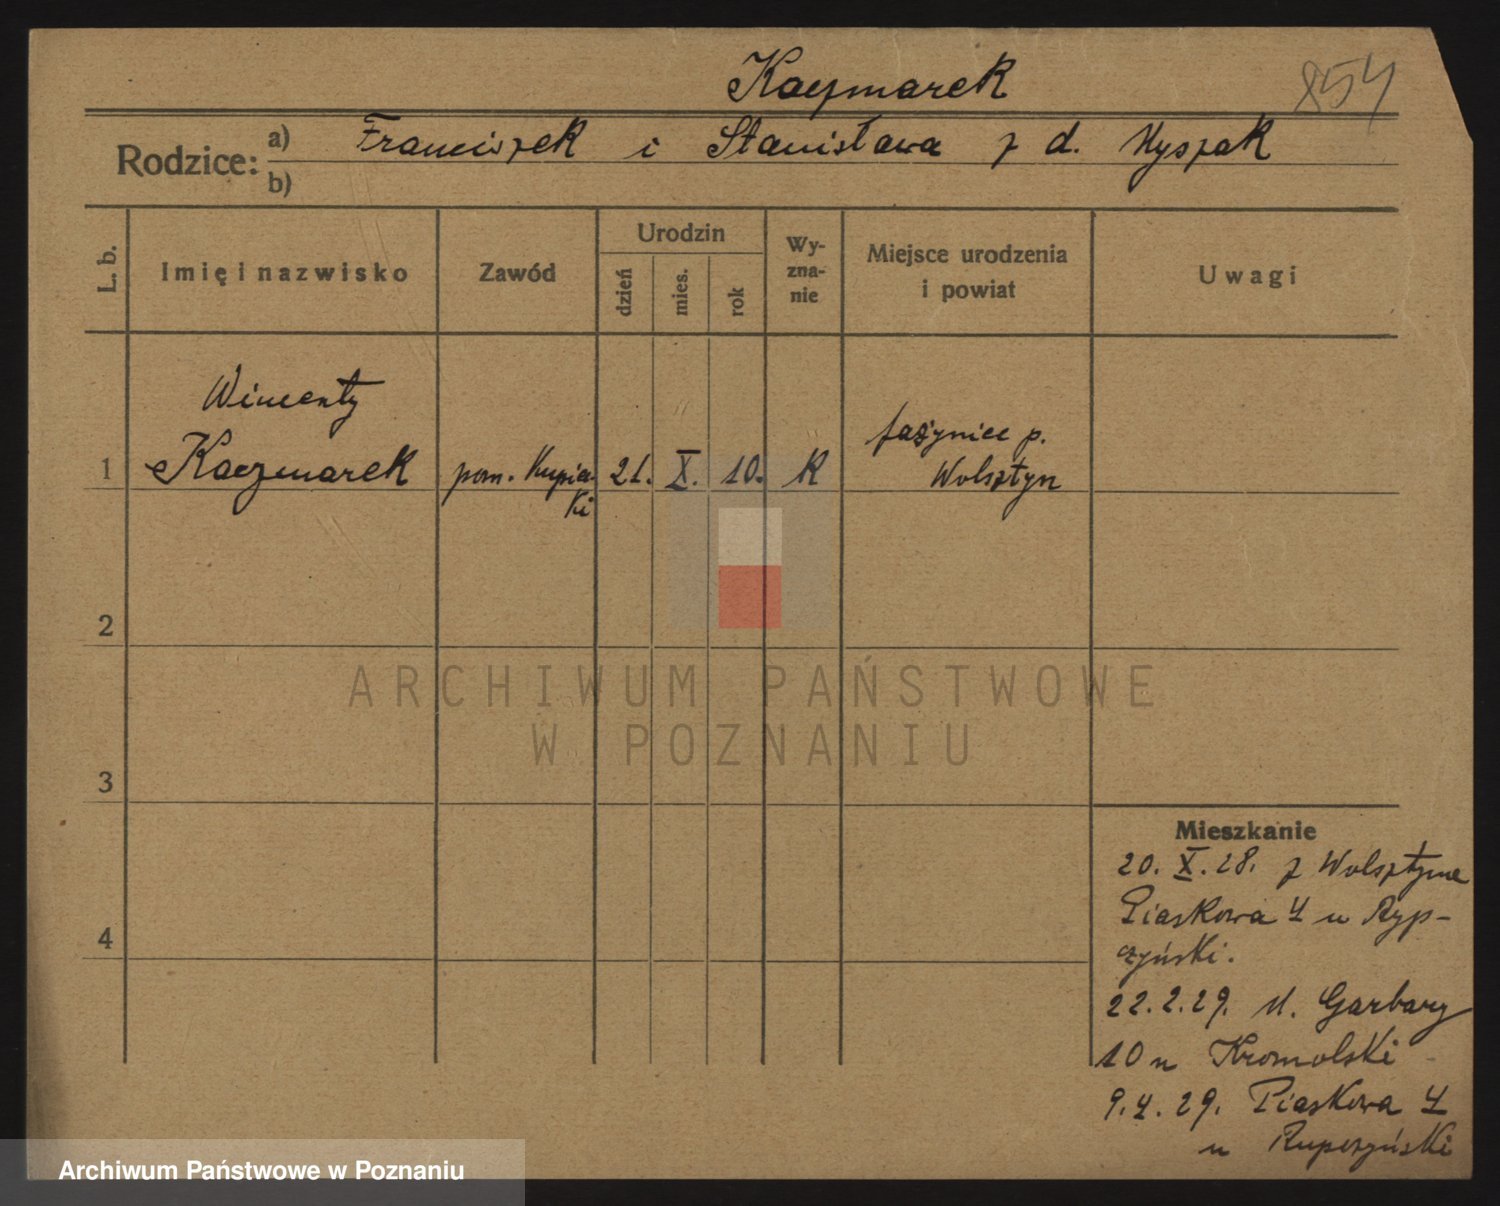 Kaczmarek
854
Rodzice:
a) Franciszek i Stanisława z d. Myszak
b)
L. b.
Imię i nazwisko
Zawód
Urodzin
dzień
mies.
rok
Wy-
zna-
nie
Miejsce urodzenia
i powiat
Uwagi
Wincenty
1 Kaczmarek pom. Kupiec- 21. X. 10. R
ki
p.
Wolsztyn
2
ARCHIWUM PAŃSTWOWE
W POZNANIU
3
4
Mieszkanie
20. X. 28. z Wolsztyna
Piaskowa 4 u Ryp-
czyński.
22.2.29. Garbary
10 u Kromolski
9.4.29. Piaskowa 4
u Rupczyński
Archiwum Państwowe w Poznaniu